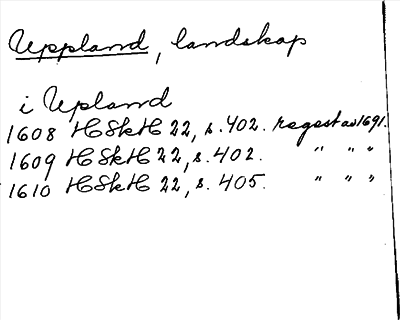 Uppland, landskap
i Upland
1608 HSkH 22, s. 402. regest av 1691.
1609 HSkH 22, s. 402. " " "
1610 HSkH 22, s. 405. " " "